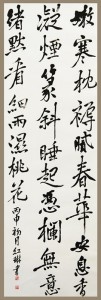 嫩寒枕褥賦春華安息香
凝煙篆斜睡起憑欄無意
緒默看細雨濕桃花 丙申初月红 書